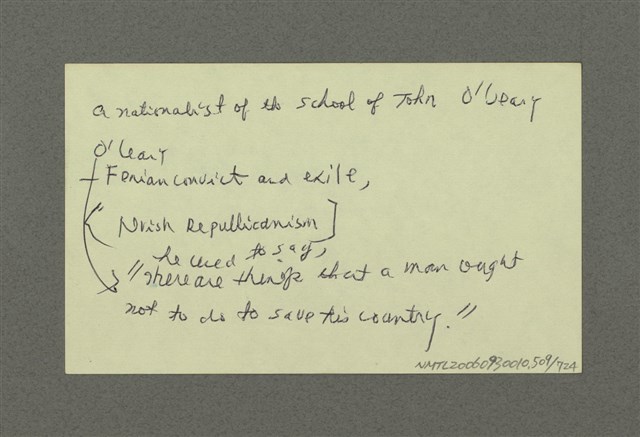 a nationalist of the school of John O'Leary
O'Leary
Fenian convict and exile,
Irish Republicanism]
he used to say,
"There are things that a man ought
not to do to save his country."
NMTL20060930010.509/724